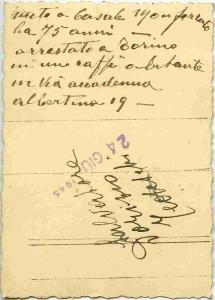 nato a Casale Monferrato
ha 75 anni —
arrestato a Torino
in un caffè abitante
in via accademia
albertina 19 —
24 GIU 1945